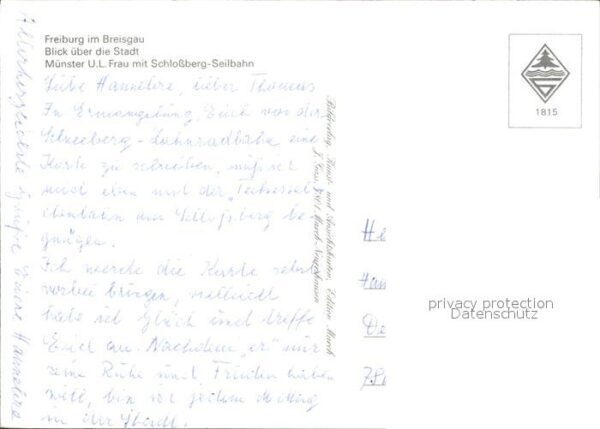 Freiburg im Breisgau
Blick über die Stadt
Münster U.L. Frau mit Schloßberg-Seilbahn
1815
Liebe Hannelore, lieber Thomas
In Ermangelung, Euch von der
Schneeberg-Zahnradbahn eine
Karte zu schreiben, muß ich
mich eben mit der
am Schloßberg be-
gnügen.
Ich werde die Karte selbst
vorbei bringen, vielleicht
habe ich Glück und treffe
Euch an. Nachdem "er" nur
seine Ruhe und Frieden haben
will, bin ich jeden Mittag
in der Stadt.
Allerherzlichste Grüße Eure Hannelore
Kunst- und Ansichtskarten, Edition March
He
Han
De
privacy protection
Datenschutz